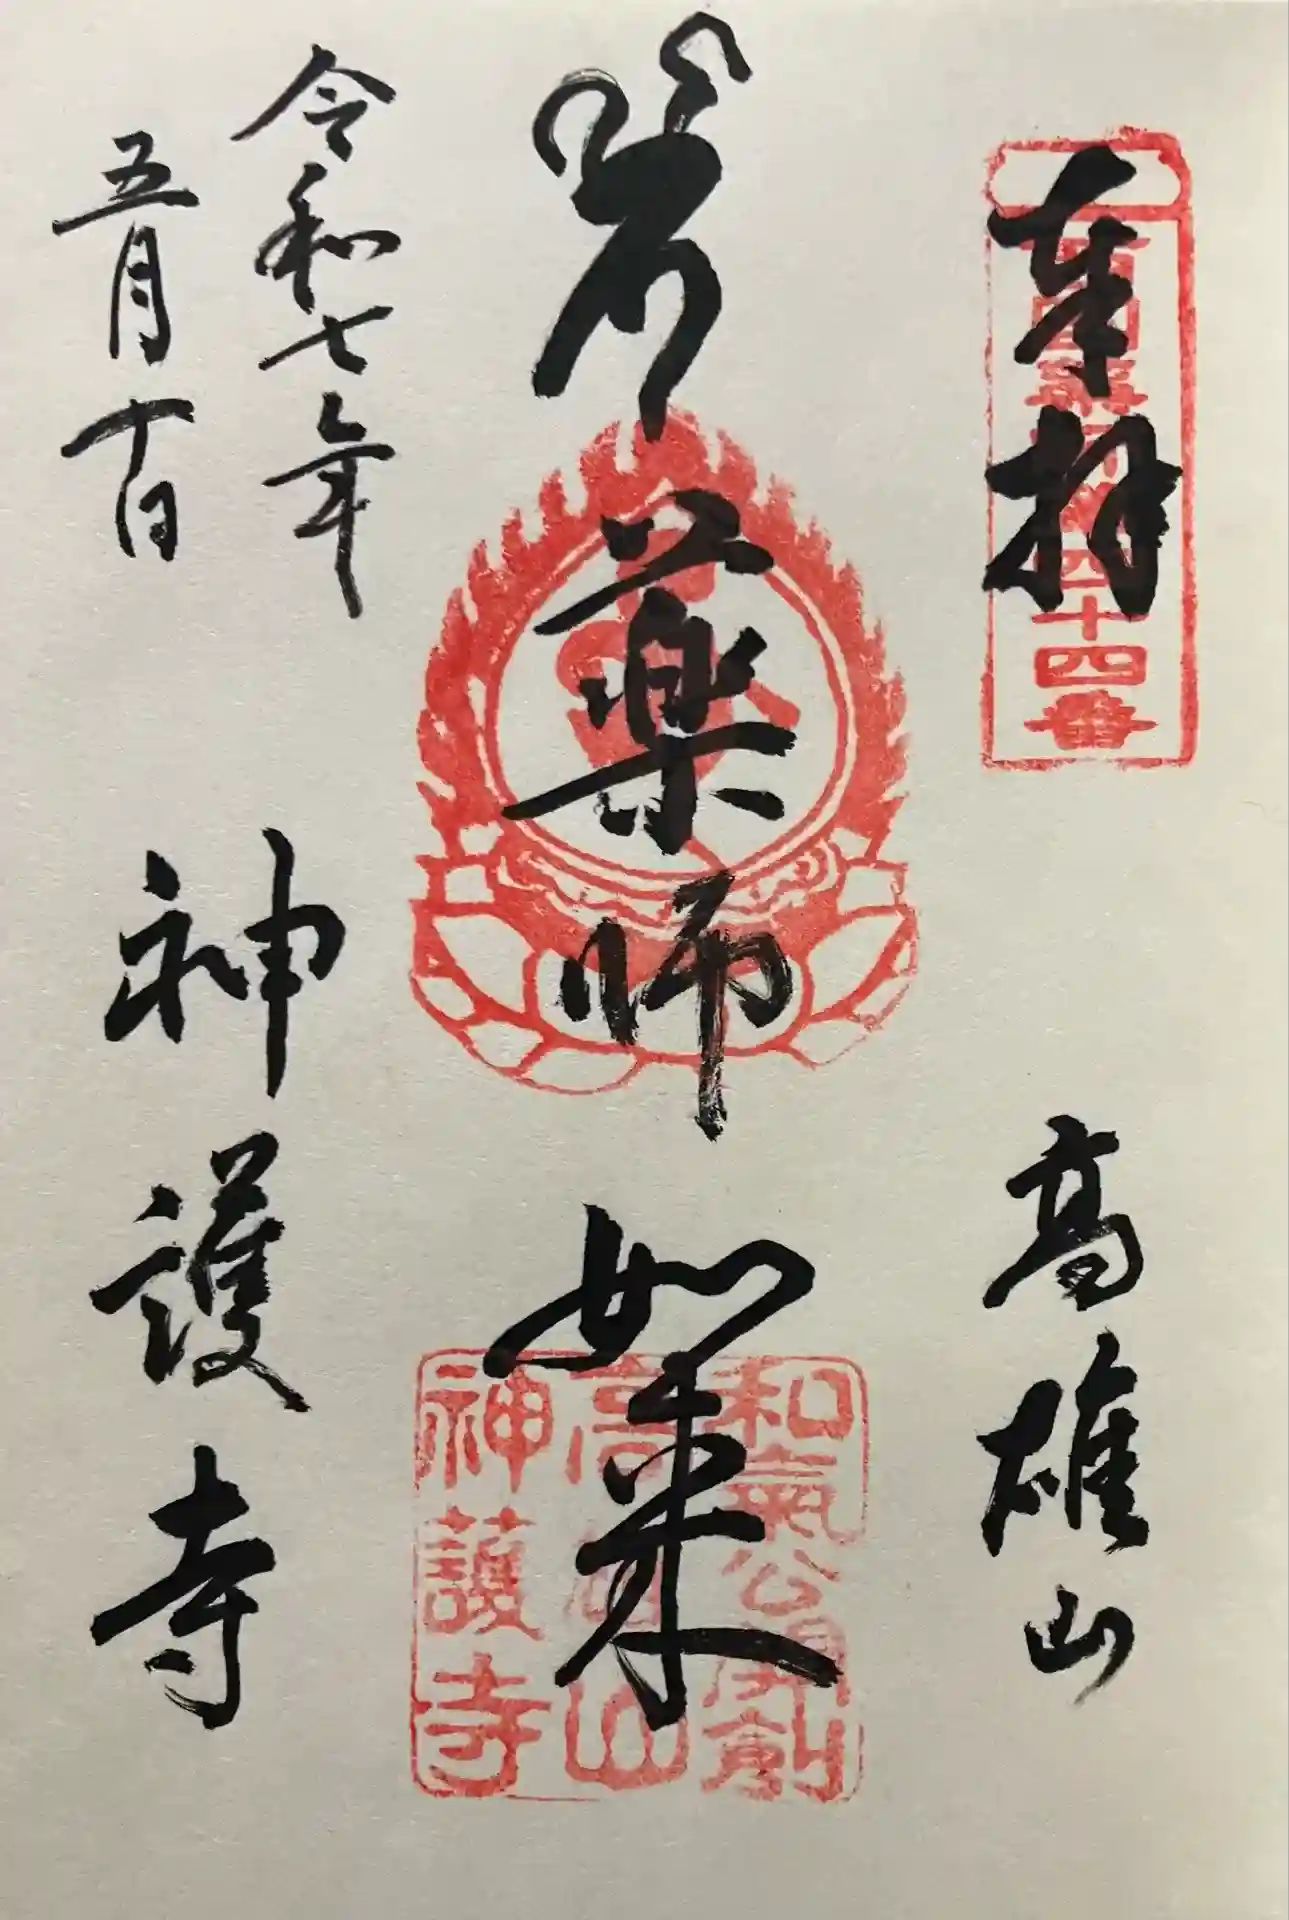 奉拝
西國薬師第四十四番
高雄山
薬師如来
和氣公
高雄山
神護寺
令和七年
五月十日
神護寺